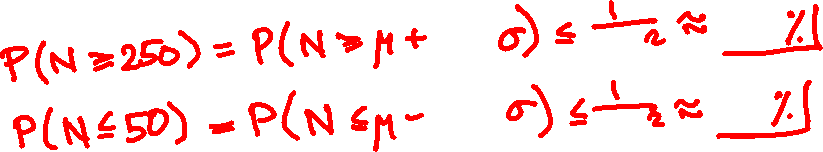 P(N ≥ 250) = P(N ≥ μ+   σ) ≤ 1/ ² ≈ ___%
P(N ≤ 50) = P(N ≤ μ-   σ) ≤ 1/ ² ≈ ___%